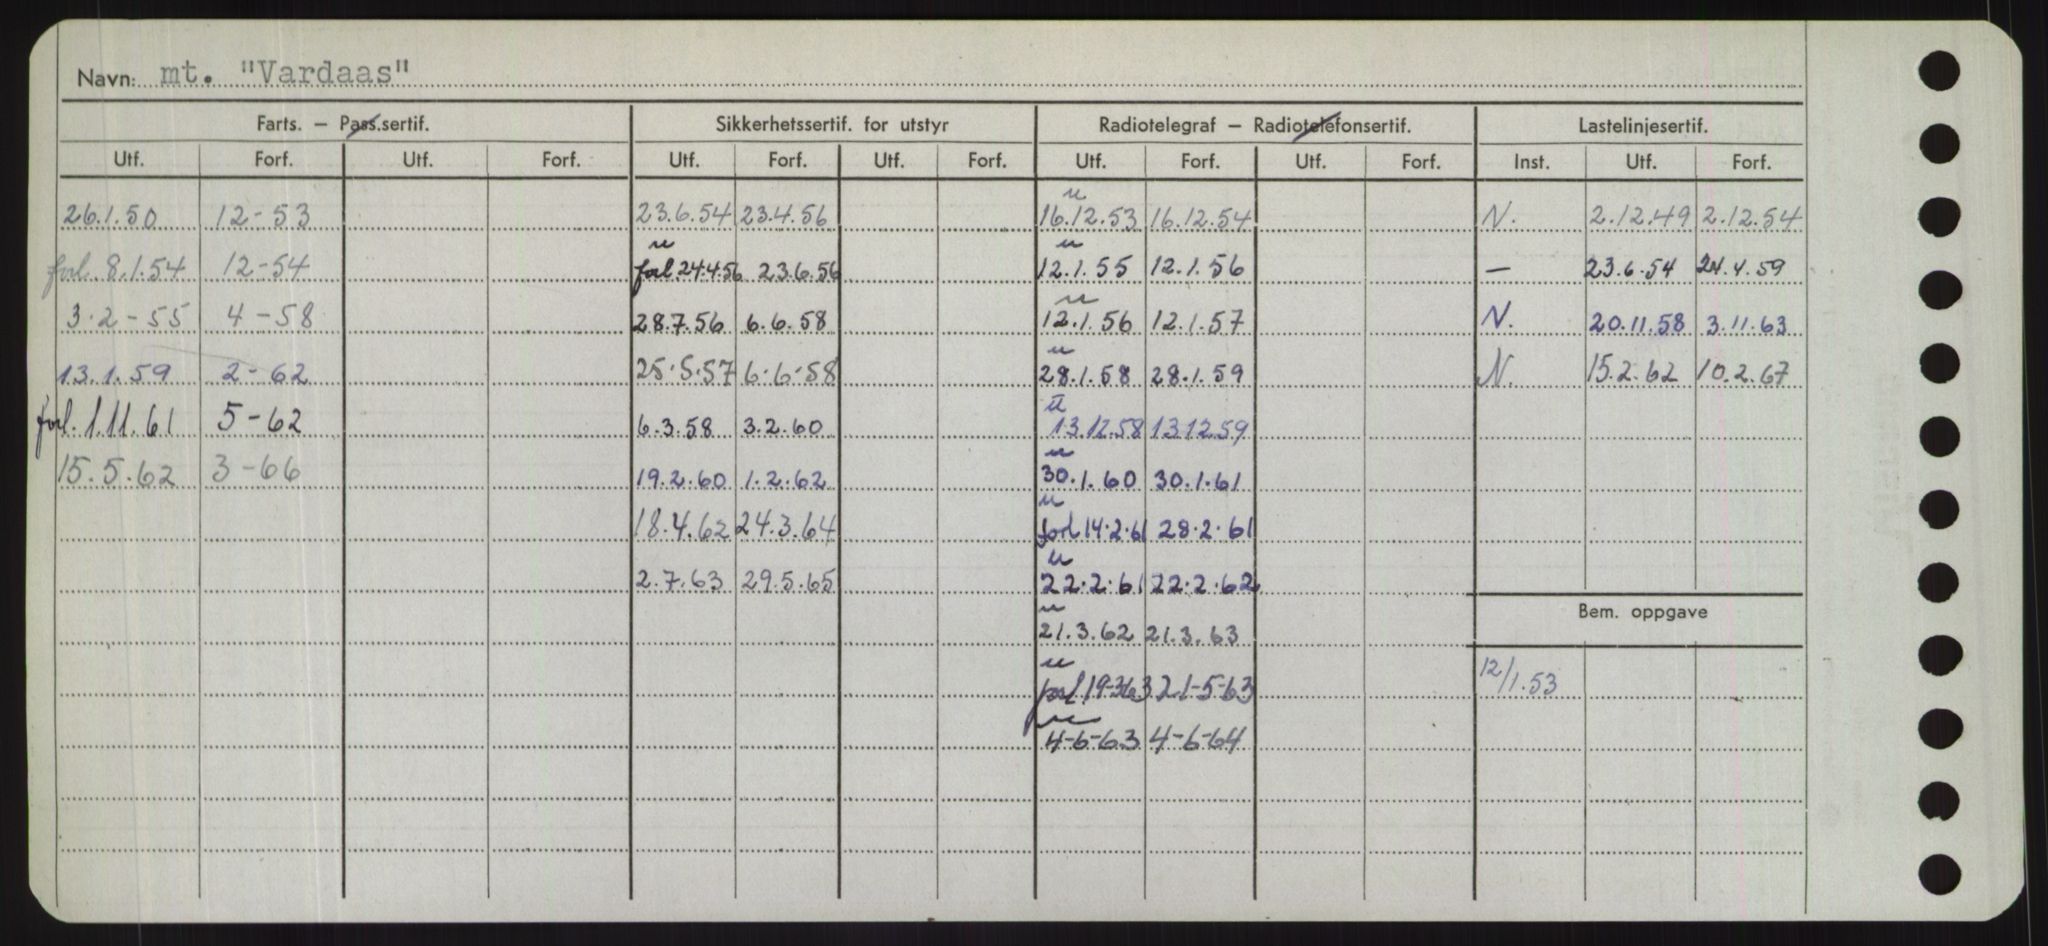 Navn: mt. "Vardaas"
Farts. — Pass.sertif. Sikkerhetssertif. for utstyr Radiotelegraf — Radiotelefonsertif. Lastelinjesertif.
Utf. Forf. Utf. Forf. Utf. Forf. Utf. Forf. Utf. Forf. Utf. Forf. Inst. Utf. Forf.
u
26.1.50 12-53 23.6.54 23.4.56 16.12.53 16.12.54 N. 2.12.49 2.12.54
u u
forl. 8.1.54 12-54 forl 24.4.56 23.6.56 12.1.55 12.1.56 — 23.6.54 24.4.59
u
3.2-55 4-58 28.7.56 6.6.58 12.1.56 12.1.57 N. 20.11.58 3.11.63
u
13.1.59 2-62 25.5.57 6.6.58 28.1.58 28.1.59 N. 15.2.62 10.2.67
u
forl. 1.11.61 5-62 6.3.58 3.2.60 13.12.58 13.12.59
u
15.5.62 3-66 19.2.60 1.2.62 30.1.60 30.1.61
u
18.4.62 24.3.64 forl 14.2.61 28.2.61
u
2.7.63 29.5.65 22.2.61 22.2.62
Bem. oppgave
u
21.3.62 21.3.63
u
forl. 19-3-63 21-5-63 12/1.53
u
4-6-63 4-6-64